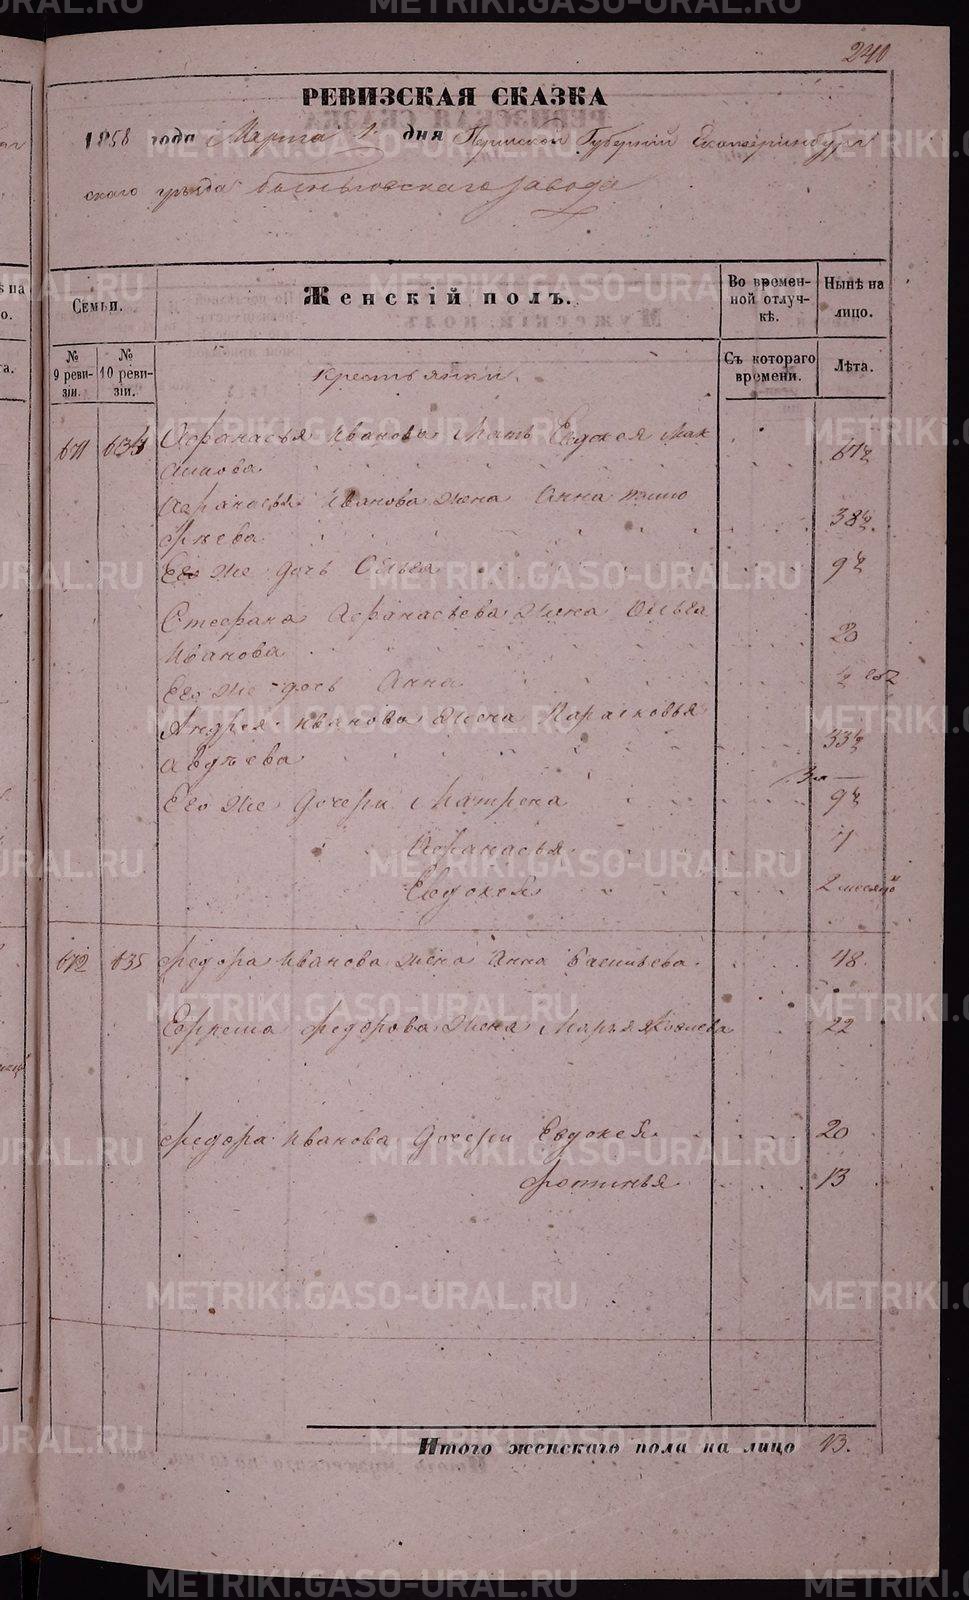 METRIKI.GASO-URAL.RU
240
РЕВИЗСКАЯ СКАЗКА
1858 года Марта 1 дня Пермской Губерніи Екатеринбург
скаго уѣзда завода
Семьи.
Женскій полъ.
Во времен-
ной отлуч-
кѣ.
Нынѣ на
лицо.
№
9 реви-
зіи.
№
10 реви-
зіи.
Крестьянки.
Съ котораго
времени.
Лѣта.
671 634 Афанасья Иванова Мать Евдокея Мак
симова 67½
Афанасья Иванова жена Анна
38½
Его же дочь Ольга 9½
Стефана Афанасьева жена Ольга
Иванова 20
Его же дочь Анна ½
Андрея Иванова жена Парасковья
Авдѣева 33½
Его же Дочери Матрена 9½
Афанасья 7
Евдокея 2 месяц
672 635 Федора Иванова жена Анна Васильева 48
Федорова жена Марья 22
Федора Иванова Дочери Евдокея 20
Фотинья 13
Итого женскаго пола на лицо 13.